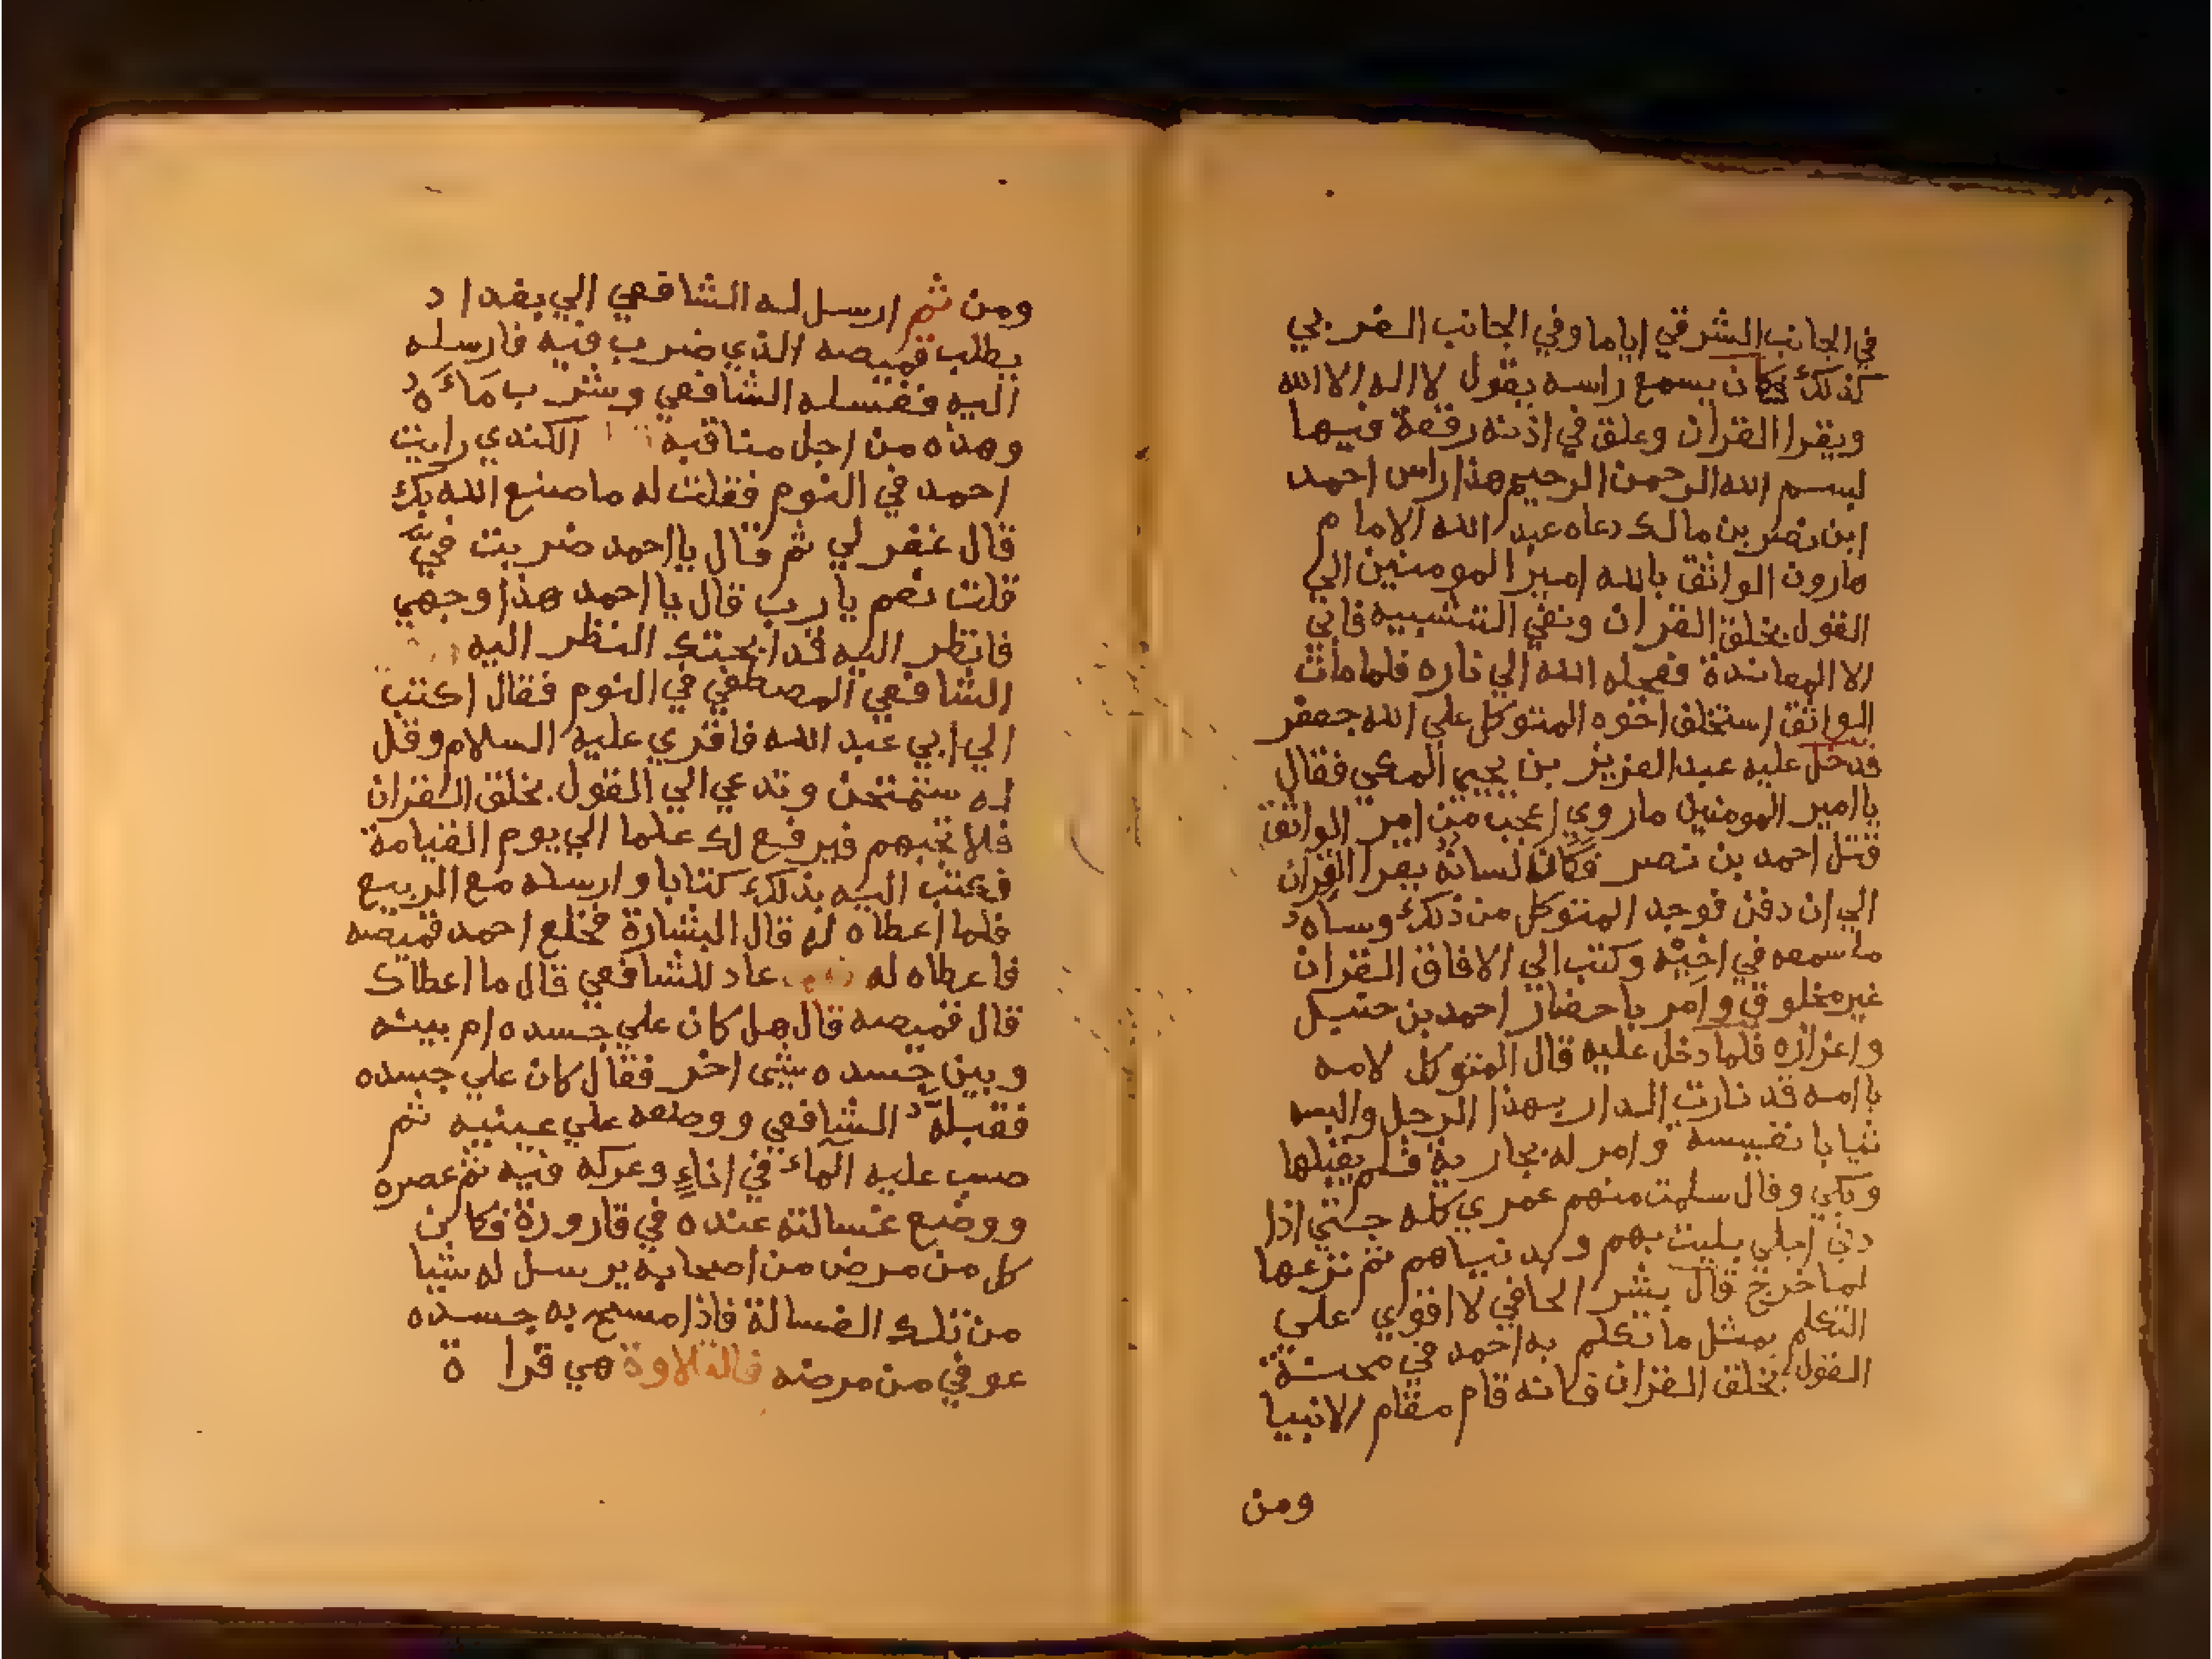 في الجانب الشرقي اياما وفي الجانب الغربي
كذلك فكان يسمع راسه يقول لا اله الا الله
ويقرا القران وعلق في اذنه رقعة فيها
بسم الله الرحمن الرحيم هذا راس احمد
ابن نصر بن مالك دعاه عبد الله الامام
هارون الواثق بالله امير المومنين الي
القول بخلق القران ونفي التشبيه فابي
الا المعاندة فعجله الله الي ناره فلما مات
الواثق استخلف اخوه المتوكل علي الله جعفر
فدخل عليه عبد العزيز بن يحيي المكي فقال
يا امير المومنين ماروي اعجب من امر الواثق
قتل احمد بن نصر فكان لسانه يقرا القران
الي ان دفن فوجد المتوكل من ذلك وساه
ما سمعه في اخيه وكتب الي الافاق القران
غير مخلوق وامر باحضار احمد بن حنبل
واعزازه فلما دخل عليه قال المتوكل لامه
يا امه قد نارت الدار بهذا الرجل والبسه
ثيابا نفيسه وامر له بجارية فلم يقبلها
وبكي وقال سلمت منهم عمري كله حتي اذا
دني اجلي بليت بهم وبدنياهم ثم نزعها
لما خرج قال بشر الحافي لا اقوي علي
التكلم بمثل ما تكلم به احمد في محنة
القول بخلق القران فكانه قام مقام الانبيا
ومن
ومن ثم ارسل له الشافعي الي بغداد
يطلب قميصه الذي ضرب فيه فارسله
اليه فغسله الشافعي وشرب ماءه
وهذه من اجل مناقبه الكندي رايت
احمد في النوم فقلت له ما صنع الله بك
قال غفر لي ثم قال يا احمد ضربت فيّ
قلت نعم يا رب قال يا احمد هذا وجهي
فانظر اليه قد ابحتك النظر اليه
الشافعي المصطفي في النوم فقال اكتب
الي ابي عبد الله فاقري عليه السلام وقل
له ستمتحن وتدعي الي القول بخلق القران
فلا تجبهم فيرفع لك علما الي يوم القيامة
فكتب اليه بذلك كتابا وارسله مع الربيع
فلما اعطاه له قال البشارة فخلع احمد قميصه
فاعطاه له عاد للشافعي قال ما اعطاك
قال قميصه قال هل كان علي جسده ام بينه
وبين جسده شيء اخر فقال كان علي جسده
فقبله الشافعي ووضعه علي عينيه ثم
صب عليه الماء في اناء وعركه فيه ثم عصره
ووضع غسالته عنده في قارورة فكان
كل من مرض من اصحابه يرسل له شيا
من تلك الغسالة فاذا مسح به جسده
عوفي من مرضه فالتلاوة هي قراة